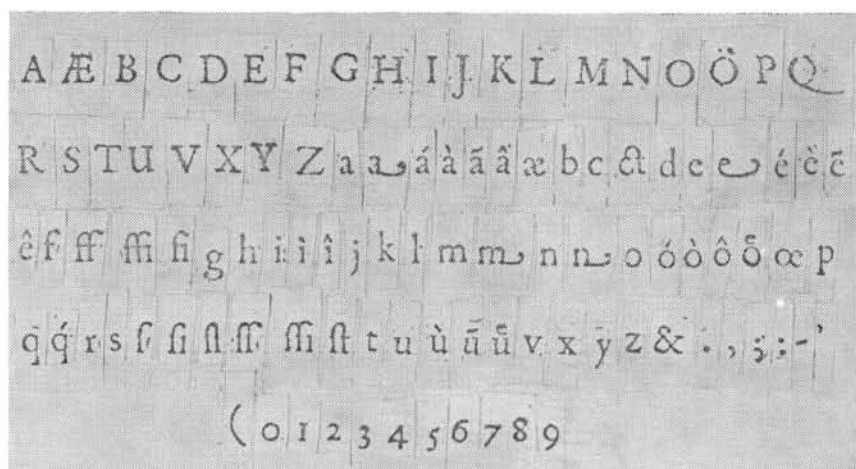 A Æ B C D E F G H I J K L M N O Ö P Q
R S T U V X Y Z a a á à ã â æ b c ct d e e é è ẽ
ê f ff ffi fi g h i ì î j k l m m n n o ó ò ô oͤ œ p
q̃ q́ r s ſ ſi ſl ſſ ſſi ſt t u ù ũ uͤ v x y z & . , ; : - ’
( 0 1 2 3 4 5 6 7 8 9